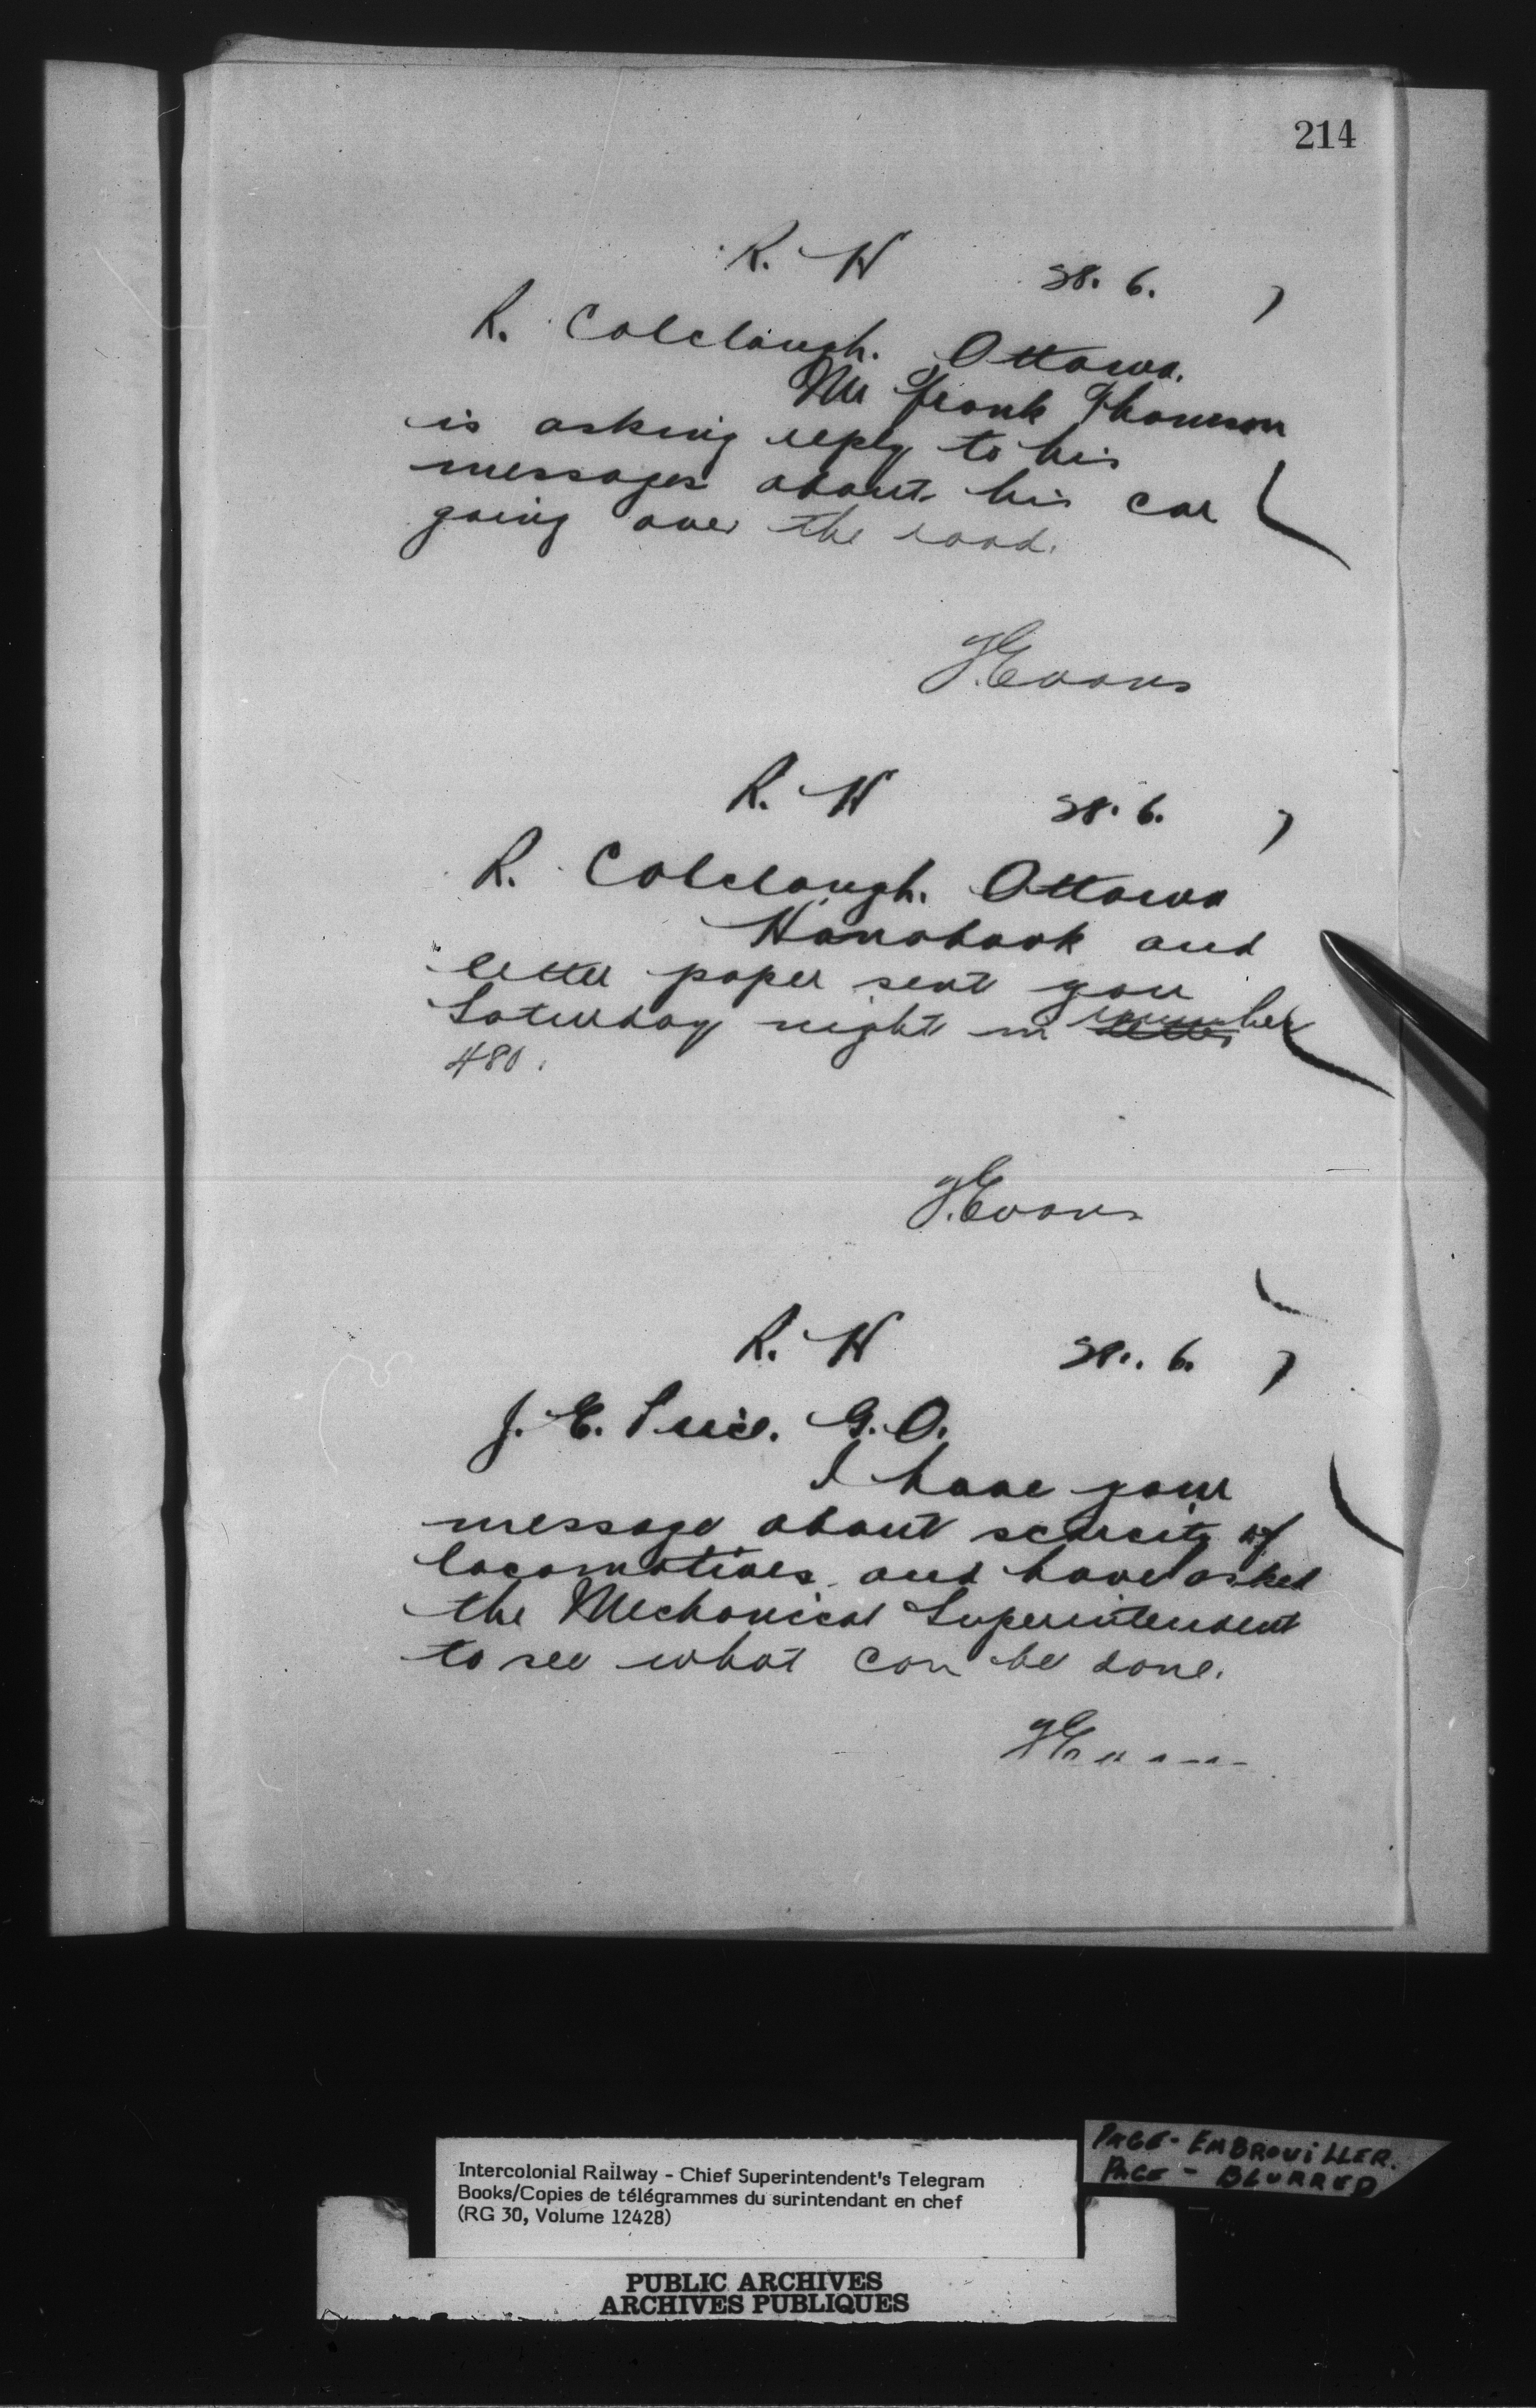 214
R. W 28. 6.
R. Colclough. Ottawa.
Mr Frank Thomson
is asking reply to his
messages about his car
going over the road.
J. Evans
R. W 28. 6.
R. Colclough. Ottawa
Handbook and
letter paper sent you
Saturday night in number
480.
J. Evans
R. W 28. 6.
J. E. Price. G. O.
I have your
message about scarcity of
locomotives and have asked
the Mechanical Superintendent
to see what can be done.
PAGE - EMBROUILLER.
PAGE - BLURRED
Intercolonial Railway - Chief Superintendent's Telegram
Books/Copies de télégrammes du surintendant en chef
(RG 30, Volume 12428)
PUBLIC ARCHIVES
ARCHIVES PUBLIQUES